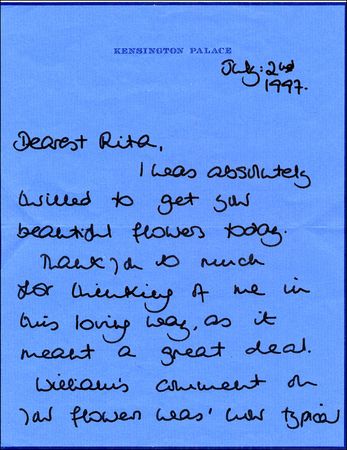 KENSINGTON PALACE
July: 2nd
1997.
Dearest Rita,
I was absolutely
thrilled to get your
beautiful flowers today.
Thank you so much
for thinking of me in
this loving way, as it
meant a great deal.
William's comment on
your flowers was 'how typical